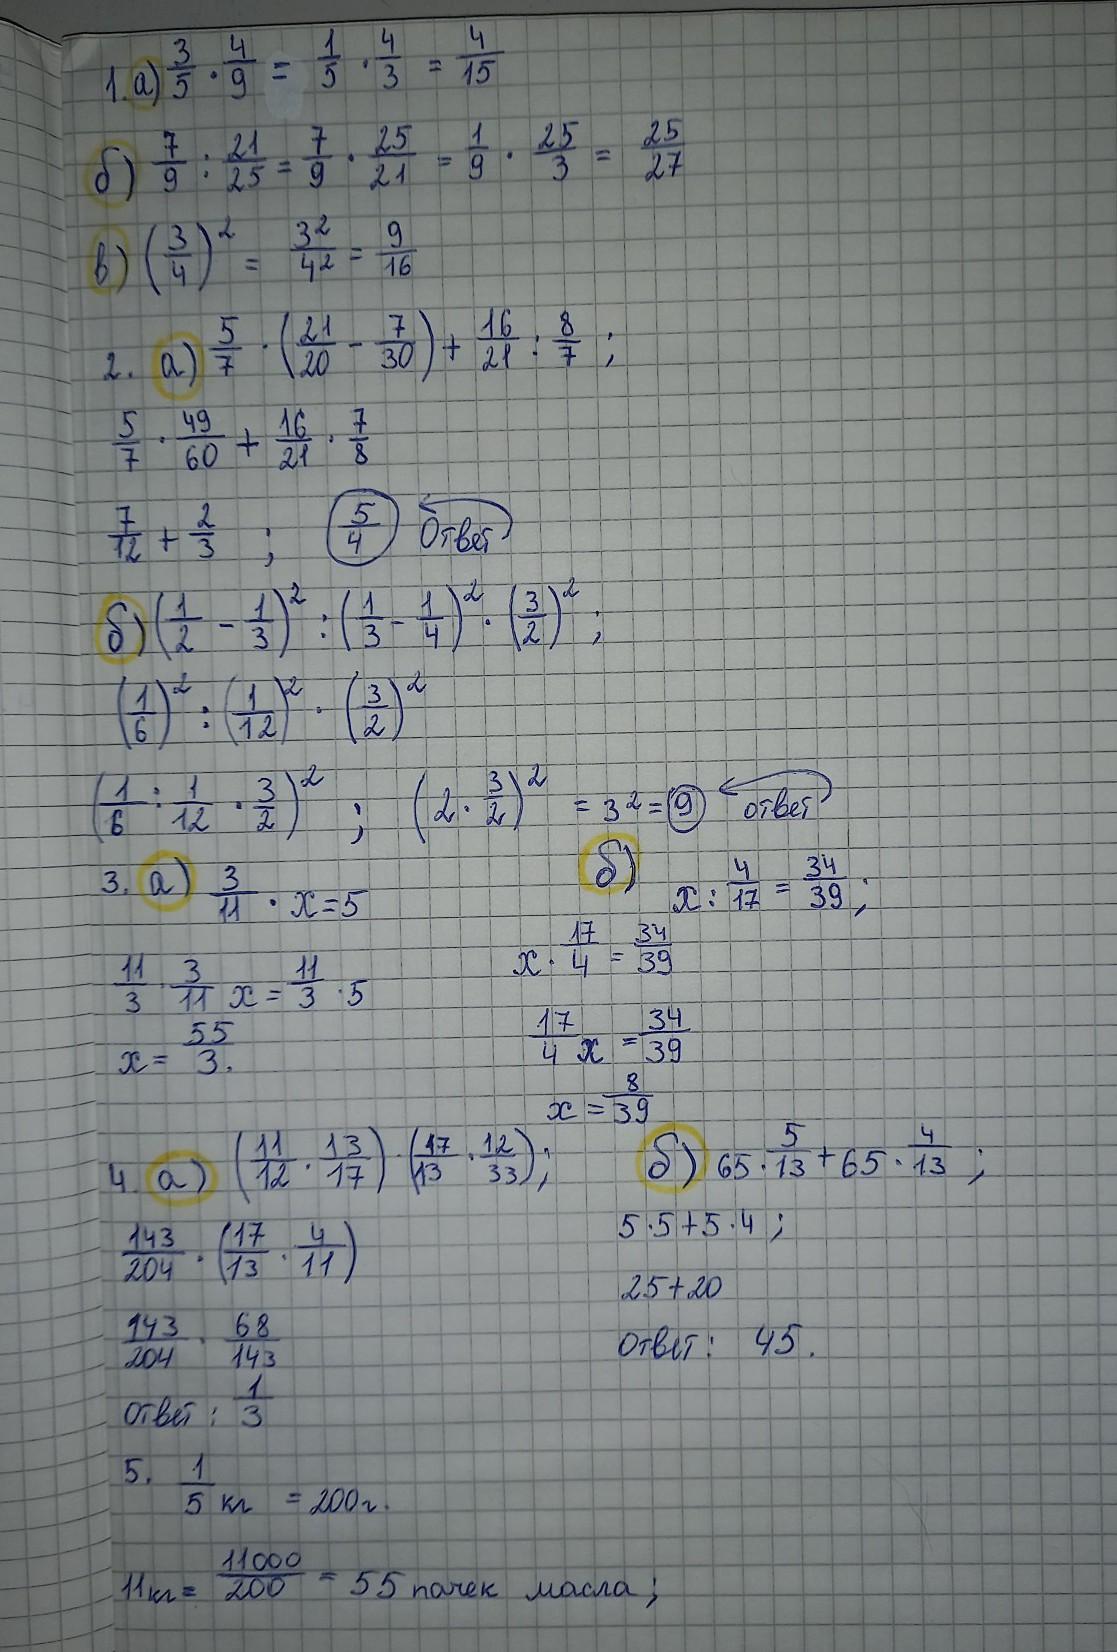 1. а) 3/5 · 4/9 = 1/5 · 4/3 = 4/15
б) 7/9 : 21/25 = 7/9 · 25/21 = 1/9 · 25/3 = 25/27
в) (3/4)² = 3²/4² = 9/16
2. а) 5/7 · (21/20 - 7/30) + 16/21 : 8/7 ;
5/7 · 49/60 + 16/21 · 7/8
7/12 + 2/3 ; 5/4 Ответ
б) (1/2 - 1/3)² : (1/3 - 1/4)² · (3/2)² ;
(1/6)² : (1/12)² · (3/2)²
(1/6 : 1/12 · 3/2)² ; (2 · 3/2)² = 3² = 9 ответ
3. а) 3/11 · x = 5
11/3 · 3/11 x = 11/3 · 5
x = 55/3.
б) x : 4/17 = 34/39 ;
x · 17/4 = 34/39
17/4 x = 34/39
x = 8/39
4. а) (11/12 · 13/17) · (17/13 · 12/33) ;
143/204 · (17/13 · 4/11)
143/204 · 68/143
ответ : 1/3
б) 65 · 5/13 + 65 · 4/13 ;
5 · 5 + 5 · 4 ;
25 + 20
ответ : 45.
5. 1/5 кг = 200 г.
11 кг = 11000/200 = 55 пачек масла ;